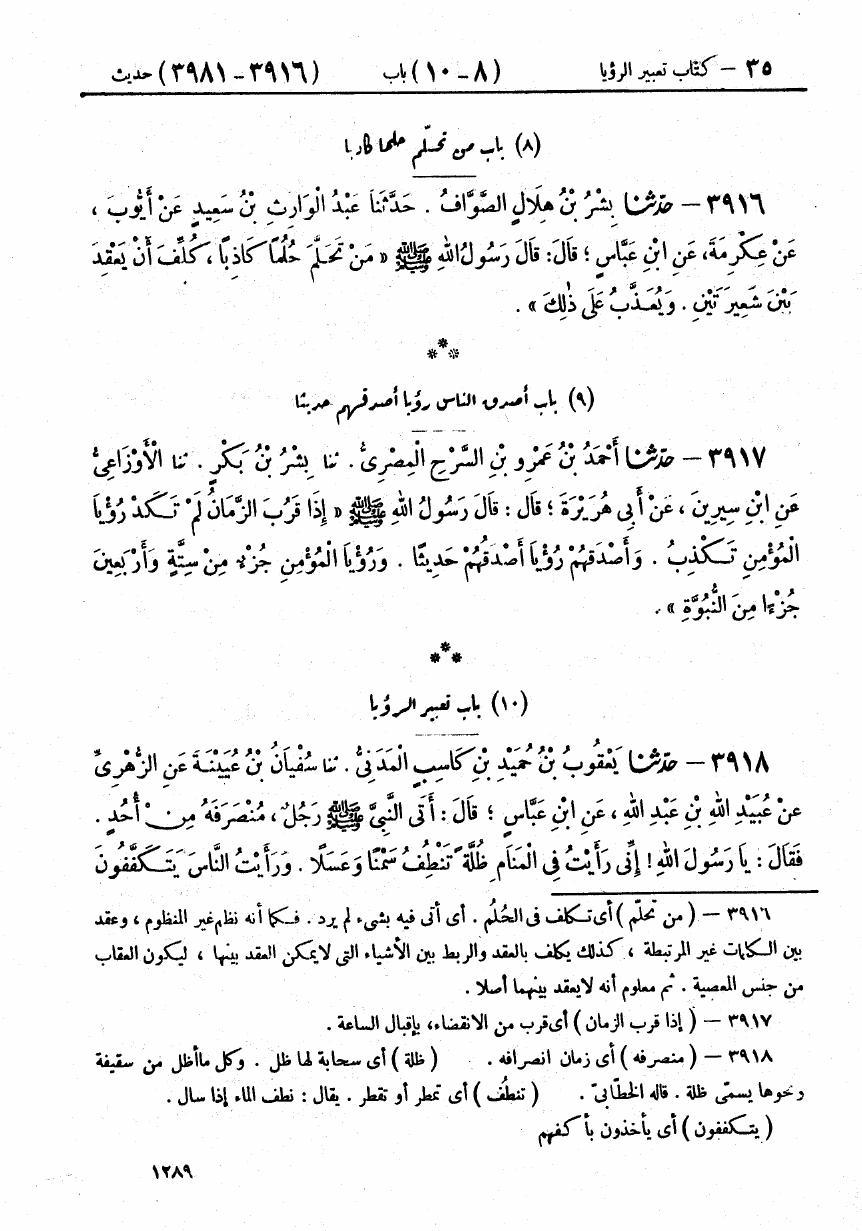 ٣٥ – كتاب تعبير الرؤيا (٨–١٠) باب (٣٩١٦–٣٩٨١) حديث
(٨) باب من تحلّم حلما كاذبا
٣٩١٦ – حدّثنا بِشْرُ بْنُ هِلَالٍ الصَّوَّافُ . حَدَّثَنَا عَبْدُ الْوَارِثِ بْنُ سَعِيدٍ عَنْ أَيُّوبَ ،
عَنْ عِكْرِمَةَ، عَنِ ابْنِ عَبَّاسٍ ؛ قَالَ: قَالَ رَسُولُ اللهِ ﷺ « مَنْ تَحَلَّمَ حُلُمًا كَاذِبًا ، كُلِّفَ أَنْ يَعْقِدَ
بَيْنَ شَعِيرَتَيْنِ . وَيُعَذَّبُ عَلَى ذٰلِكَ » .
***
(٩) باب أصدق الناس رؤيا أصدقهم حديثا
٣٩١٧ – حدّثنا أَحْمَدُ بْنُ عَمْرِو بْنِ السَّرْحِ الْمِصْرِىُّ . ثنا بِشْرُ بْنُ بَكْرٍ . ثنا الْأَوْزَاعِىُّ
عَنِ ابْنِ سِيرِينَ ، عَنْ أَبِى هُرَيْرَةَ ؛ قَالَ : قَالَ رَسُولُ اللهِ ﷺ « إِذَا قَرُبَ الزَّمَانُ لَمْ تَكَدْ رُؤْيَا
الْمُؤْمِنِ تَكْذِبُ . وَأَصْدَقُهُمْ رُؤْيَا أَصْدَقُهُمْ حَدِيثًا . وَرُؤْيَا الْمُؤْمِنِ جُزْءٌ مِنْ سِتَّةٍ وَأَرْبَعِينَ
جُزْءًا مِنَ النُّبُوَّةِ » .
***
(١٠) باب تعبير الرؤيا
٣٩١٨ – حدّثنا يَعْقُوبُ بْنُ حُمَيْدِ بْنِ كَاسِبٍ الْمَدَنِىُّ . ثنا سُفْيَانُ بْنُ عُيَيْنَةَ عَنِ الزُّهْرِىِّ
عَنْ عُبَيْدِ اللهِ بْنِ عَبْدِ اللهِ ، عَنِ ابْنِ عَبَّاسٍ ؛ قَالَ : أَتَى النَّبِىَّ ﷺ رَجُلٌ ، مُنْصَرَفَهُ مِنْ أُحُدٍ .
فَقَالَ : يَا رَسُولَ اللهِ ! إِنِّى رَأَيْتُ فِى الْمَنَامِ ظُلَّةً تَنْطُفُ سَمْنًا وَعَسَلًا . وَرَأَيْتُ النَّاسَ يَتَكَفَّفُونَ
٣٩١٦ – ( من تحلّم ) أى تكلف فى الحُلُم . أى أتى فيه بشىء لم يرد . فكما أنه نظم غير المنظوم ، وعقد
بين الكلمات غير المرتبطة ، كذلك يكلف بالعقد والربط بين الأشياء التى لا يمكن العقد بينها ، ليكون العقاب
من جنس المعصية . ثم معلوم أنه لا يعقد بينهما أصلا .
٣٩١٧ – ( إذا قرب الزمان ) أى قرب من الانقضاء، بإقبال الساعة .
٣٩١٨ – ( منصرفه ) أى زمان انصرافه . ( ظلة ) أى سحابة لها ظل . وكل ما أظل من سقيفة
ونحوها يسمّى ظلة . قاله الخطّابىّ . ( تنطُف ) أى تمطر أو تقطر . يقال : نطف الماء إذا سال .
( يتكففون ) أى يأخذون بأكفهم
١٢٨٩